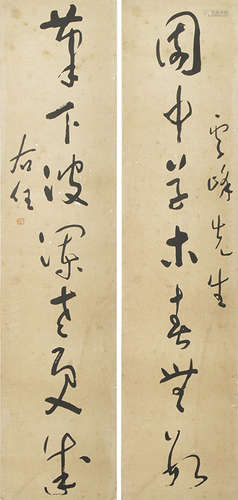 雲峰先生
園中草木春無數
筆下波瀾老更成
右任